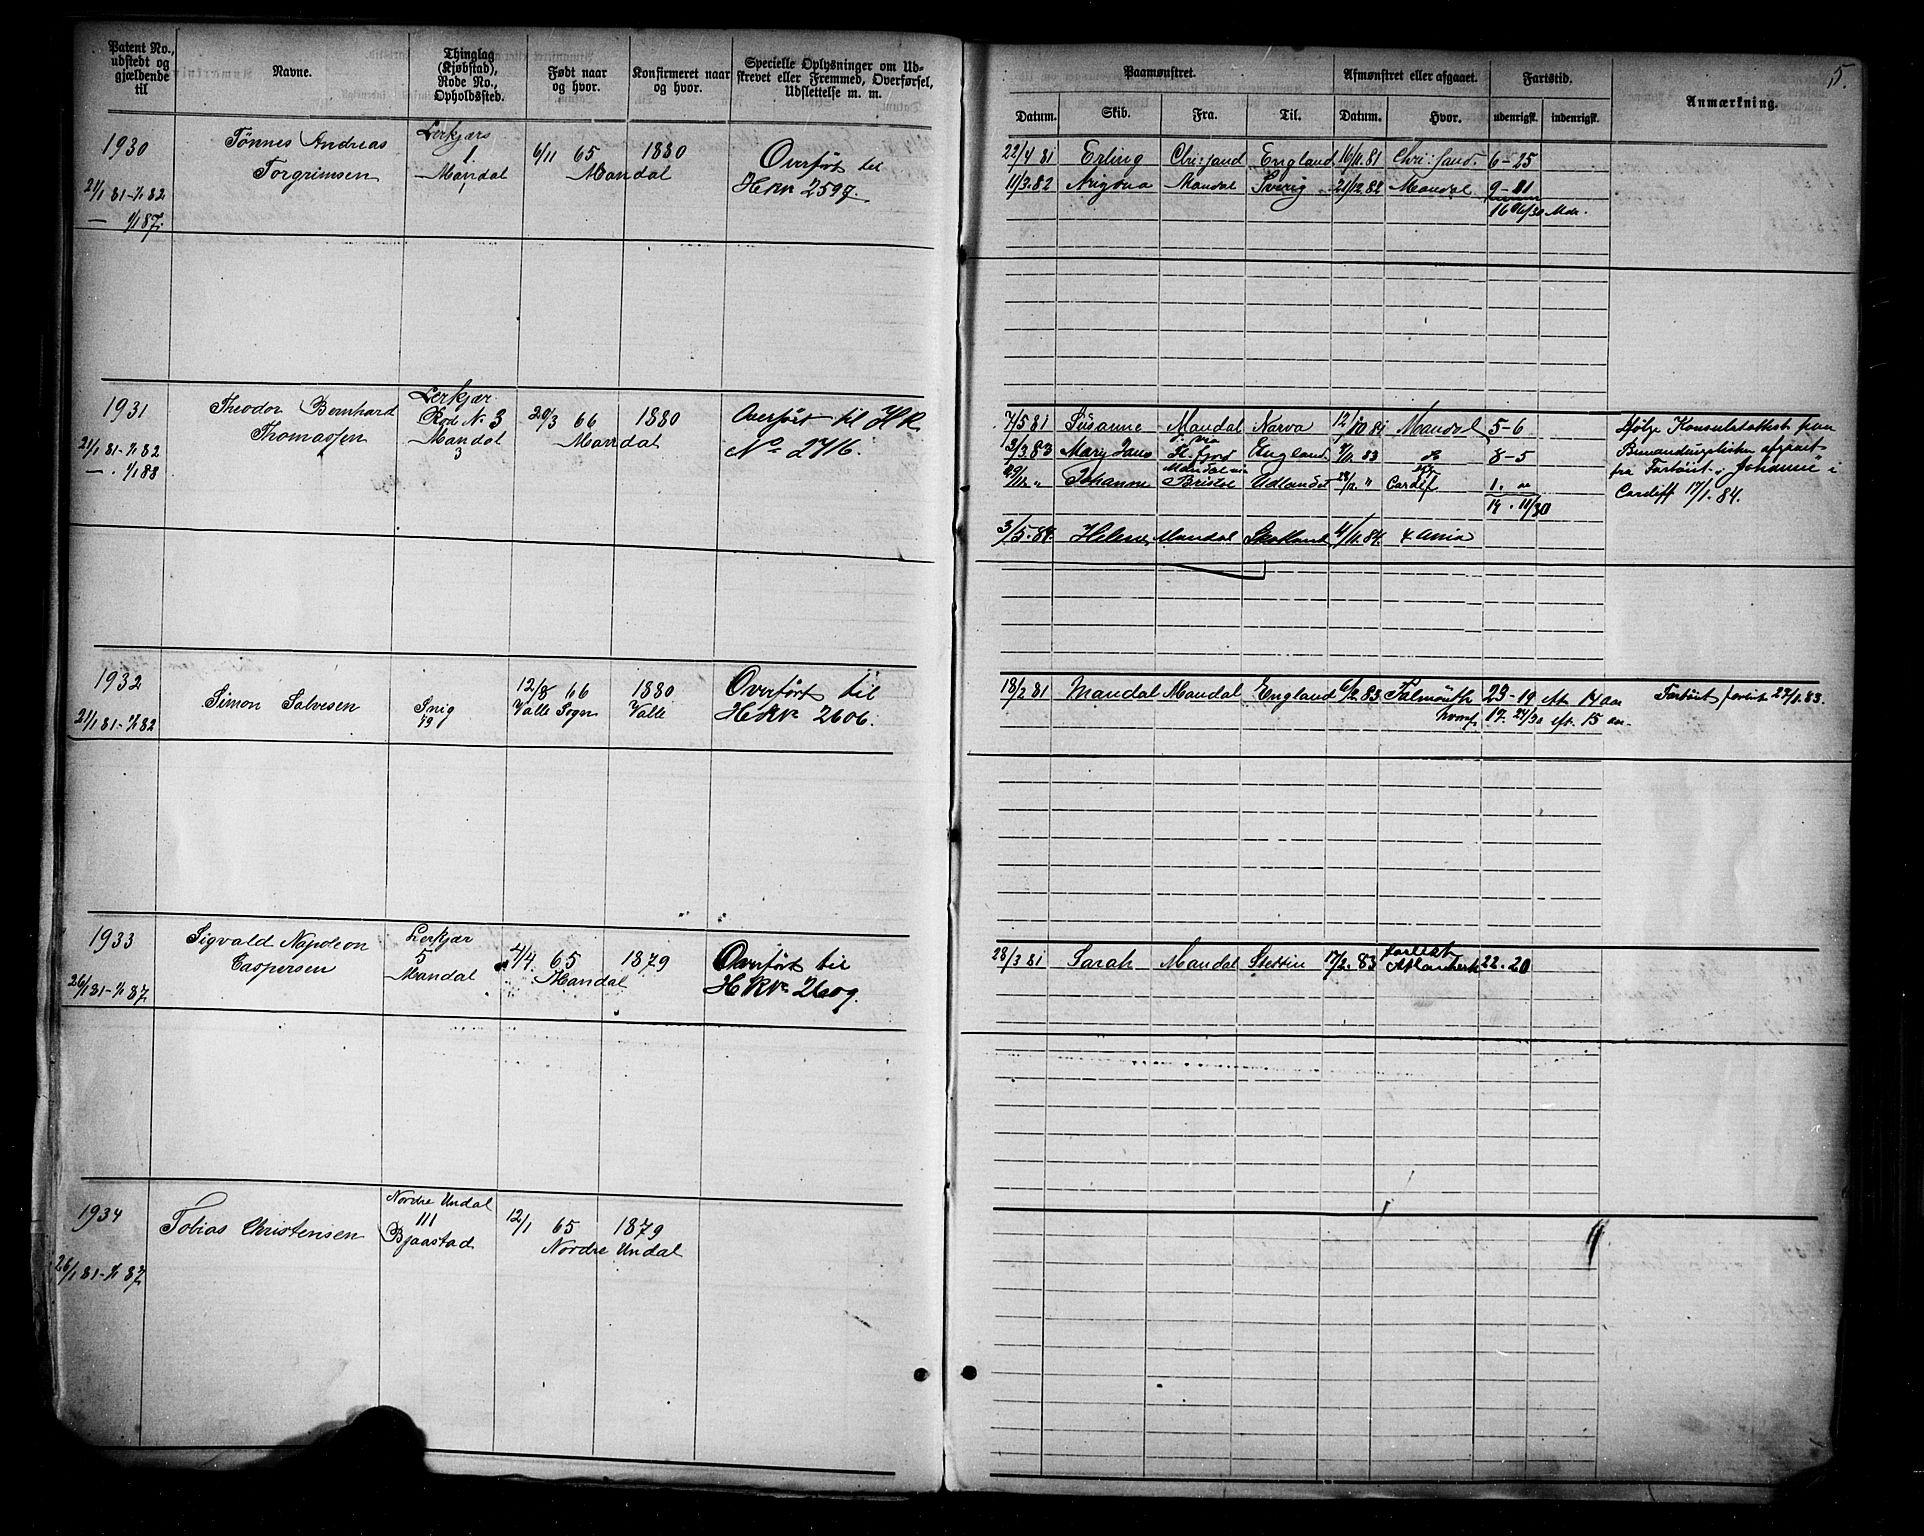 5.
Patent No., udstedt og gjældende til
Navne.
Thinglag (Kjøbstad), Rode No., Opholdssted.
Født naar og hvor.
Konfirmeret naar og hvor.
Specielle Oplysninger om Udskrevet eller Fremmed, Overførsel, Udslettelse m. m.
Paamønstret.
Afmønstret eller afgaaet.
Fartstid.
Anmærkning.
Datum. Skib. Fra. Til. Datum. Hvor. udenrigsk. indenrigsk.
1930
21/1 81-1/1 82
— 1/1 87.
Tønnes Andreas
Torgrimsen
Lerkjærs
1.
Mandal
1
6/11 65 1880
Mandal
Overført til
HRNo 2597.
22/4 81 Erling Chr: sand England 16/11.81 Chri: sand. 6-25
11/3.82 Mandal Sverig 21/12.82 Mandal 9-21
16 16/30 Mdr.
1931
21/1 81-1/1 82
— . 1/1 88
Theodor Bernhard
Thomassen
Lerkjær
Rode N. 3
Mandal
3
20/3 66 1880
Mandal
Overført til H.R.
No 2716.
7/5 81 Susanne Mandal Narva 12/10 81 Mandal 5-6
13/3.83 Mary Jane England 83 do 8-5
Mandal via
Johanne Bristol Udlandet Cardif
14. 11/30
3/5.84. Helene Mandal Skotland 4/11.84.
Ifølge Konsulatattest paa
Bemandingslisten afgaaet
fra Fartøiet "Johanne" i
Cardiff 17/1.84.
1932
21/1 81-1/1 82
Simon Salvesen
Snig
19
12/8 66 1880
Valle Sogn Valle
Overført til
HRNo 2606.
18/2 81 Mandal Mandal England 6/2.83 Falmouth 23-19 eft. 14 aar
hvoraf 17. 24/30 eft. 15 aar
Fartøiet forlist 27/1.83.
1933
26/1 81-1/1 87.
Sigvald Napoleon
Caspersen
Lerkjær
5
Mandal
4/4. 65 1879
Mandal
Overført til
HRNo 2609.
28/3 81 Sarah Mandal Stettin 17/2.83 forlist
Atlanterh. 22-20
1934
26/1 81-1/1 87.
Tobias Christensen
Nordre Undal
111
Bjaastad
12/1 65 1879
Nordre Undal